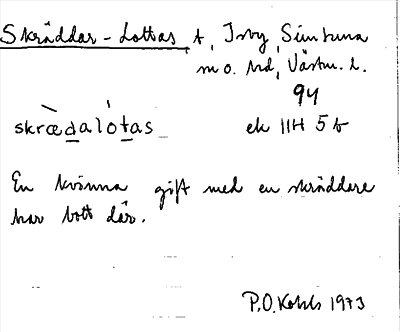 Skräddar-Lottas t, Isby, Simtuna
m o. hd, Västm. l.
94
skræ̀dalótas ek 11H 5b
En kvinna gift med en skräddare
har bott där.
P.O. Kohls 1973